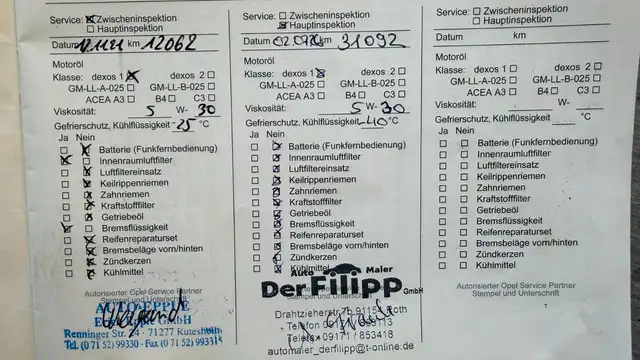 Service: Zwischeninspektion
Hauptinspektion
Datum km 12062
Motoröl
Klasse: dexos 1 dexos 2
GM-LL-A-025 GM-LL-B-025
ACEA A3 B4 C3
Viskosität: 5 W- 30
Gefrierschutz, Kühlflüssigkeit -25 °C
Ja Nein
Batterie (Funkfernbedienung)
Innenraumluftfilter
Luftfiltereinsatz
Keilrippenriemen
Zahnriemen
Kraftstofffilter
Getriebeöl
Bremsflüssigkeit
Reifenreparaturset
Bremsbeläge vorn/hinten
Zündkerzen
Kühlmittel
Autorisierter Opel Service Partner
Stempel und Unterschrift
AUTO-EPPLE
GmbH
Renninger Str. 24 - 71277 Rutesheim
Tel. (0 71 52) 99330 - Fax (0 71 52) 993315
Service: Zwischeninspektion
Hauptinspektion
Datum km 31092
Motoröl
Klasse: dexos 1 dexos 2
GM-LL-A-025 GM-LL-B-025
ACEA A3 B4 C3
Viskosität: 5 W- 30
Gefrierschutz, Kühlflüssigkeit -40 °C
Ja Nein
Batterie (Funkfernbedienung)
Innenraumluftfilter
Luftfiltereinsatz
Keilrippenriemen
Zahnriemen
Kraftstofffilter
Getriebeöl
Bremsflüssigkeit
Reifenreparaturset
Bremsbeläge vorn/hinten
Zündkerzen
Kühlmittel
Auto Maler
Der Filipp GmbH
Stempel und Unterschrift
Drahtzieherstr. 7, 91154 Roth
Telefon
09171 / 853418
automaler_derfilipp@t-online.de
Service: Zwischeninspektion
Hauptinspektion
Datum km
Motoröl
Klasse: dexos 1 dexos 2
GM-LL-A-025 GM-LL-B-025
ACEA A3 B4 C3
Viskosität: W-
Gefrierschutz, Kühlflüssigkeit °C
Ja Nein
Batterie (Funkfernbedienung)
Innenraumluftfilter
Luftfiltereinsatz
Keilrippenriemen
Zahnriemen
Kraftstofffilter
Getriebeöl
Bremsflüssigkeit
Reifenreparaturset
Bremsbeläge vorn/hinten
Zündkerzen
Kühlmittel
Autorisierter Opel Service Partner
Stempel und Unterschrift